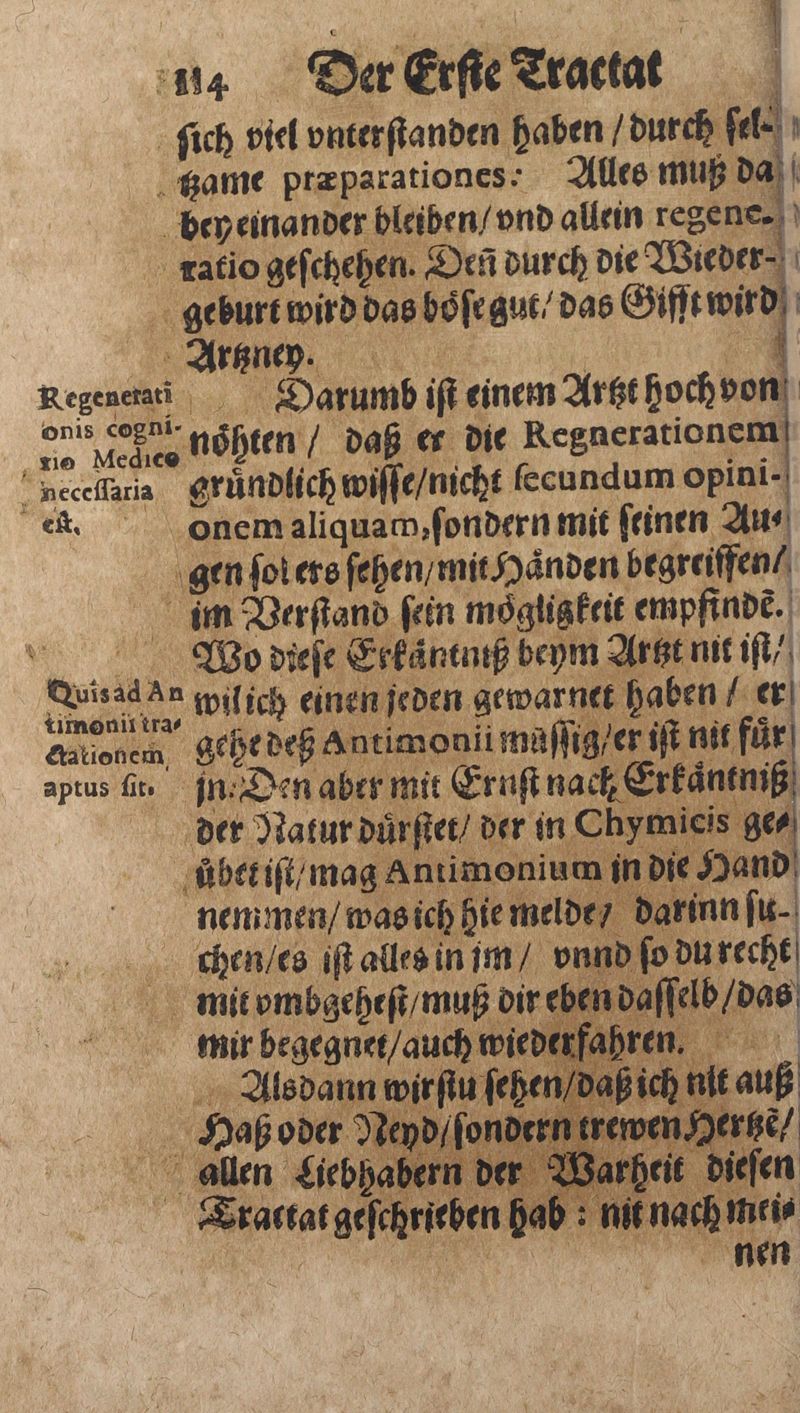 114 Der Erſte Tractat
ſich viel vnterſtanden haben / durch ſel-
tzame præparationes: Alles muß da
bey einander bleiben/ vnd allein regene-
ratio geſchehen. Den̄ durch die Wieder-
geburt wird das boͤſe gut/ das Gifft wird
Artzney.
Darumb iſt einem Artzt hoch von
noͤhten / daß er die Regnerationem
gruͤndlich wiſſe/nicht ſecundum opini-
onem aliquam, ſondern mit ſeinen Au-
gen ſol ers ſehen/ mit Haͤnden begreiffen/
im Verſtand ſein moͤgligkeit empfindẽ.
Wo dieſe Erkaͤntniß beym Artzt nit iſt/
wil ich einen jeden gewarnet haben / er
gehe deß Antimonii muͤſſig/er iſt nit fuͤr
jn: Den aber mit Ernſt nach Erkaͤntniß
der Natur duͤrſtet/ der in Chymicis ge-
uͤbet iſt/ mag Antimonium in die Hand
nemmen/ was ich hie melde/ darinn ſu-
chen/es iſt alles in jm / vnnd ſo du recht
mit vmbgeheſt/ muß dir eben daſſelb /das
mir begegnet/ auch wiederfahren.
Alsdann wirſtu ſehen/ daß ich nit auß
Haß oder Neyd/ ſondern trewen Hertzẽ/
allen Liebhabern der Warheit dieſen
Tractat geſchrieben hab : nit nach mei-
nen
Regenerati
onis cogni-
tio Medico
neceſſaria
eſt.
Quis ad An
timonii tra-
ctationem
aptus ſit.